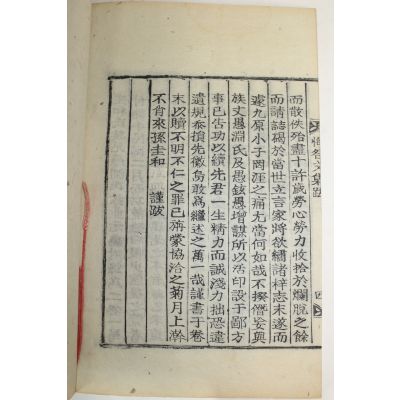 而散佚殆盡十許歲勞心勞力收拾於爛脫之餘
而請誌碣於當世立言家將欲繡諸梓志未遂而
遽九原小子罔涯之痛尤當何如哉不揆僭妄與
族丈愚淵氏及愚鉉愚增謀所以活印設于鄙方
事已告功以續先君一生精力而誠淺力拙恐違
遺規忝損先徽烏敢爲繼述之萬一哉謹書于卷
末以贖不明不仁之罪已旃蒙協洽之菊月上澣
不肖來孫圭和 謹跋
文集跋
四